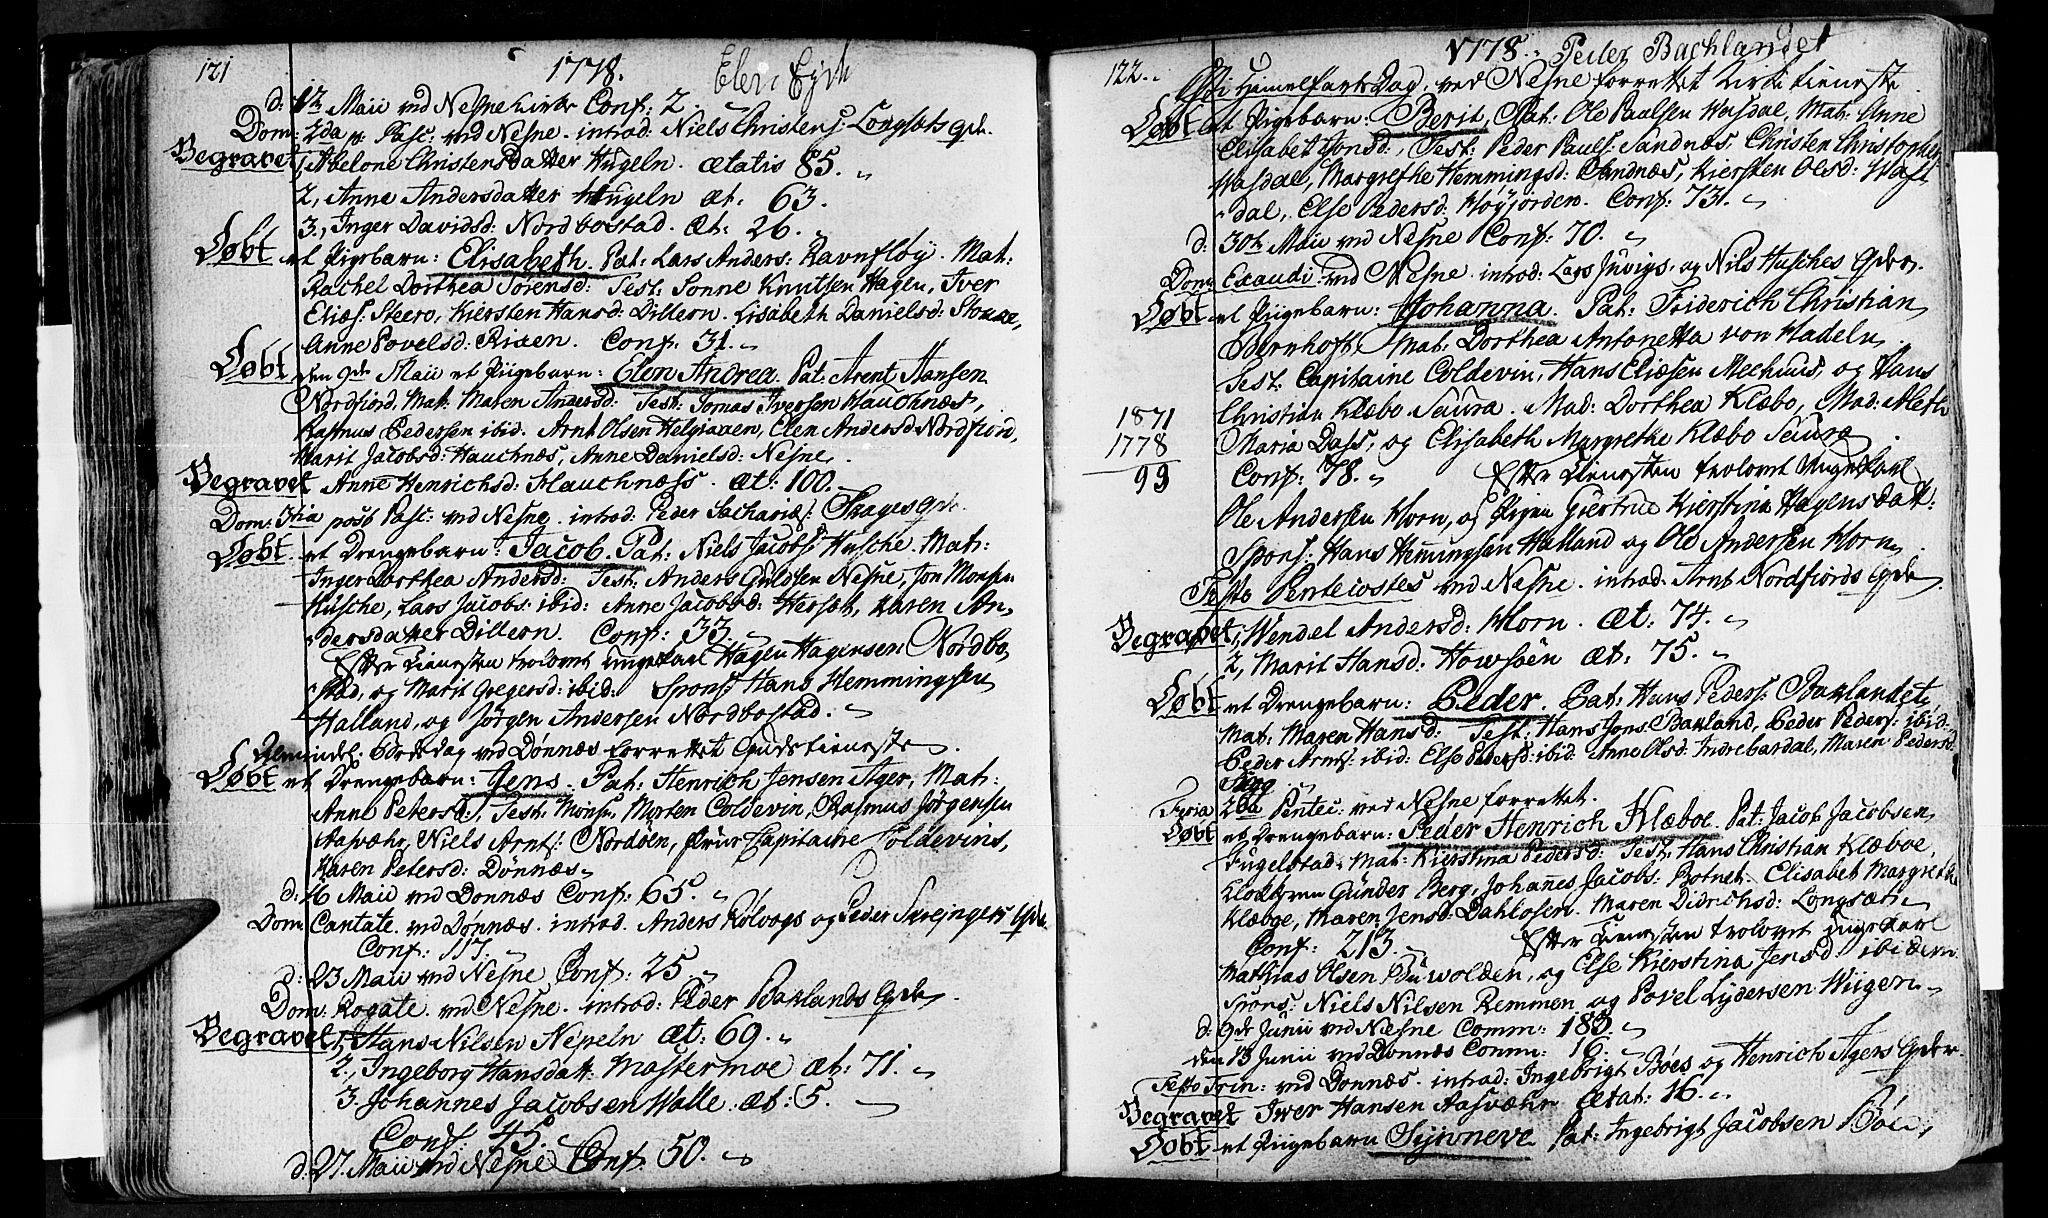 121 1778. Elen
d: 12 Maii ved Nesne Kirke Conf: 2.
Dom: 2da p. Pasc. ved Nesne. introd: Niels Christens: Longsæts qde.
Begravet 1, Abelone Christensdatter Hugeln. Ætatis 85.
2, Anne Andersdatter Hugeln æt: 63.
3, Inger Davidsd: Nordbostad. Æt: 26.
Døbt et Pigebarn: Elisabeth. Pat: Lars Anders: Ravnfløÿ. Mat:
Rachel Dorthea Sörensd: Test: Sonne Knutsen Hagen, Iver
Eliæs: Steero, Kiersten Hansd: Dillern. Lisabeth Danielsd:
Anne Povelsd: Risen. Conf: 31.
Døbt den 9de Maii et Piigebarn: Elen Andrea. Pat: Arent Hansen
Nordfiord, Mat: Maren Andersd: Test: Tomas Iversen Hauchnæs,
Rasmus Pedersen ibid. Arnt Olsen Helgaaen, Elen Andersd: Nordfiord,
Marit Jacobsd: Hauchnæs, Anne Danielsd: Nesne.
Begravet Anne Henrichsd: Hauchnæss. æt: 100.
Dom: 3tia post Pasc: ved Nesne. introd: Peder Sachariæ: Skages qde.
Døbt et Drengebarn: Jacob. Pat: Niels Jacobs: Husche. Mat:
Inger Dorthea Andersd: Test: Anders Guldsen Nesne, Jon Monsen
Husche, Lars Jacobs: ibid: Anne Jacobsd: Hersæt, Karen An-
dersdatter Dillern. Conf: 33.
Efter Tienesten trolovet ungekarl Hagen Hagensen Nordbo-
stad, og Marit Gregersd: ibid: Spons: Hans Hemmingsen
Halland, og Jörgen Andersen Nordbostad.
Almindel: Bordedag ved Dønnæs forrettet Gudstieneste.
Døbt et Drengebarn: Jens. Pat: Henrich Jensen Ager, Mat:
Anne Petersd:, Test: Mons: Morten Coldevin, Rasmus Jörgensen
Aasvæhr, Niels Arnts: Nordöen, Frue Capitaine Coldevins,
Karen Petersd: Dønnæs.
d: 16 Maii ved Dønnæs Conf: 65.
Dom: Cantate. ved Dønnæs. introd. Anders Rölvogs og Peder qder.
Conf: 117.
d: 23 Maii ved Nesne Conf: 25.
Dom: Rogate. ved Nesne. introd: Peder Baklands qde.
Begravet 1, Hans Nilsen Nepeln æt: 69.
2, Ingeborg Hansdatt: Mastermoe æt: 71.
3, Johannes Jacobsen Walle. æt: 5.
Conf. 45.
d: 27. Maii ved Nesne Conf. 50.
122. 1778. Peder Bachlandet
Christi Himmelfarts Dag. ved Nesne forrettet Kirketieneste.
Døbt et Pigebarn: Berit, Pat: Ole Paalsen Wasdal, Mat: Anne
Elisabet Jonsd:, Test: Peder Pauls: Sandnæs, Christen
Wasdal, Margrethe Hemmingsd: Sandnæs, Kiersten Olsd: Was-
dal, Else Pedersd: Høÿjorden. Conf: 73.
d: 30te Maii ved Nesne Conf: 70.
Dom: Exaudi: ved Nesne. introd: Lars Juvigs: og Nils Husches qder.
Døbt et Piigebarn: Johanna. Pat: Friderich Christian
Bernhoft, Mat: Dorthea Antonetta von Hadeln.
Test: Capitaine Coldevin, Hans Eliæsen Mechius, og Hans
1871 Christian Klæbo Saura. Mad: Dorthea Klæbo, Mad: Aleth
1778 Maria Dass, og Elisabeth Margrethe Klæbo Saura
93 Conf: 78. Efter Tienesten trolovet Ungekarl
Ole Andersen Horn, og Pigen Giertrud Kierstina Hagensdatt:
Spons: Hans Hemmingsen Halland og Ole Andersen Horn.
Festo Pentecostes ved Nesne. introd: Arnt Nordfiords qde.
Begravet 1, Wendel Andersd: Horn. Æt: 74.
2, Marit Hansd: Howsöen æt: 75.
Døbt et Drengebarn: Peder. Pat: Hans Peders: Baklandet,
Mat: Maren Hansd: Test: Hans Jons: Bakland, Peder Peders: ibid.
Peder Arnts: ibid: Else Pedersd: ibid. Anne Olsd: Indrebardal, Maren Pedersd:
Skog
Feria 2da Pentec: ved Nesne forrettet.
Døbt et Drengebarn: Peder Henrich Klæboe. Pat: Jacob Jacobsen
Fugelstad. Mat: Kierstina Pedersd: Test: Hans Christian Klæboe,
Klokeren Gunder Berg, Johannes Jacobs: Botnet. Elisabet Margrethe
Klæboe, Maren Jensd: Dahlosen. Maren Didrichsd: Longsæt.
Conf: 213. Efter Tienesten trolovet ungekarl
Mathias Olsen Huwolden, og Else Kierstina Jensd: ibidem.
Spons: Niels Nilsen Remmen og Povel Lÿdersen Wiigen.
d: 9de Junii ved Nesne Comm: 185.
den 13 Junii ved Dønnæs Comm: 16.
Festo Trin: ved Dønnæs. introd: Ingebrigt Böes og Henrich Agers qder.
Begravet Iwer Hansen Aasvæhr Ætat: 16.
Døbt et Piigebarn Synneve. Pat: Ingebrigt Jacobsen Böe,